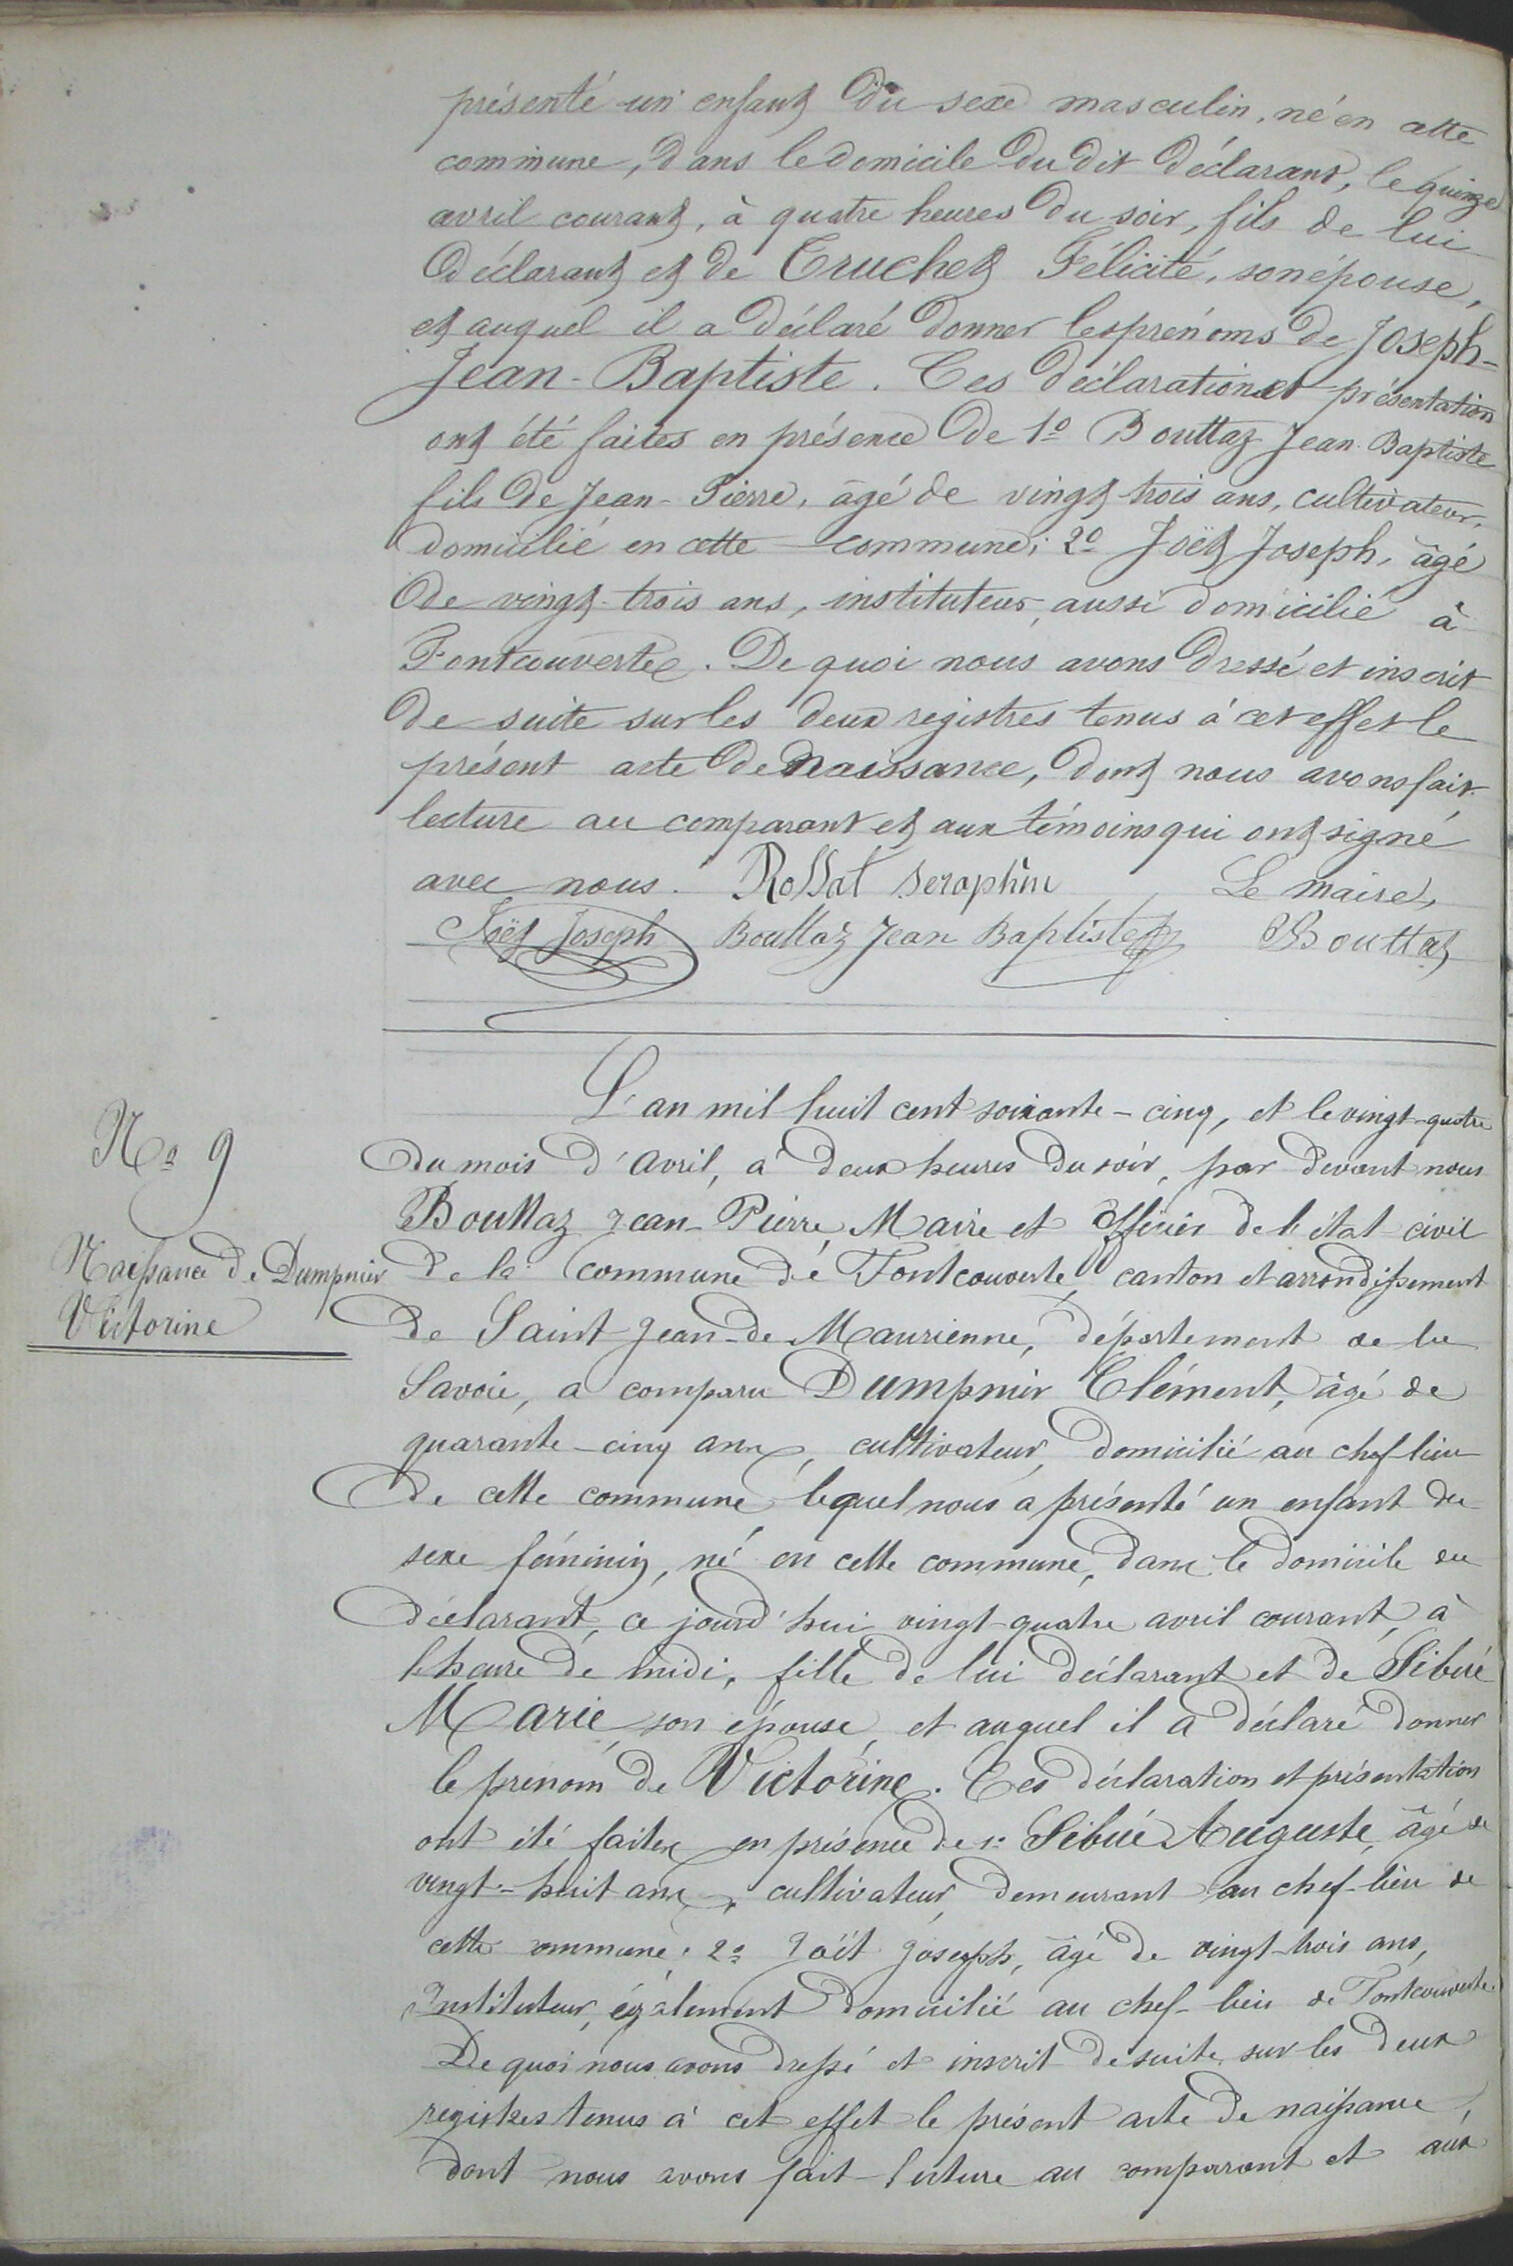 présenté un enfant du sexe masculin, né en cette
commune, dans le domicile du dit déclarant, le quinze
avril courant, à quatre heures du soir, fils de lui
déclarant et de Truchet Félicité, son épouse,
et auquel il a déclaré donner les prénoms de Joseph-
Jean-Baptiste. Ces déclaration et présentation
ont été faites en présence de 1º Bouttaz Jean Baptiste
fils de Jean-Pierre, âgé de vingt trois ans, cultivateur,
domicilié en cette commune; 2º Joët Joseph, âgé
de vingt-trois ans, instituteur, aussi domicilié à
Fontcouverte. De quoi nous avons dressé et inscrit
de suite sur les deux registres tenus à cet effet le
présent acte de naissance, dont nous avons fait
lecture au comparant et aux témoins qui ont signé
avec nous. Rossat Seraphin Le maire,
Joët Joseph Bouttaz Jean Baptiste Bouttaz
L'an mil huit cent soixante-cinq, et le vingt-quatre
du mois d'avril, à deux heures du soir, par devant nous
Nº 9
Bouttaz Jean-Pierre, Maire et officier de l'état civil
Naissance de Dumpnier
de la commune de Fontcouverte, canton et arrondissement
Victorine
de Saint Jean-de Maurienne, département de la
Savoie, a comparu Dumpnier Clément, âgé de
quarante-cinq ans, cultivateur, domicilié au chef-lieu
de cette commune, lequel nous a présenté un enfant du
sexe féminin, né en cette commune, dans le domicile du
déclarant, ce jourd'hui vingt-quatre avril courant, à
l'heure de midi, fille de lui déclarant et de Sibué
Marie, son épouse, et auquel il a déclaré donner
le prenom de Victorine. Ces déclaration et présentation
ont été faites en présence de 1º Sibué Auguste, âgé de
vingt-huit ans, cultivateur, demeurant au chef-lieu de
cette commune; 2º Joët Joseph, âgé de vingt-trois ans,
Instituteur, également domicilié au chef-lieu de Fontcouverte.
De quoi nous avons dressé et inscrit de suite sur les deux
registres tenus à cet effet le présent acte de naissance,
dont nous avons fait lecture au comparant et aux